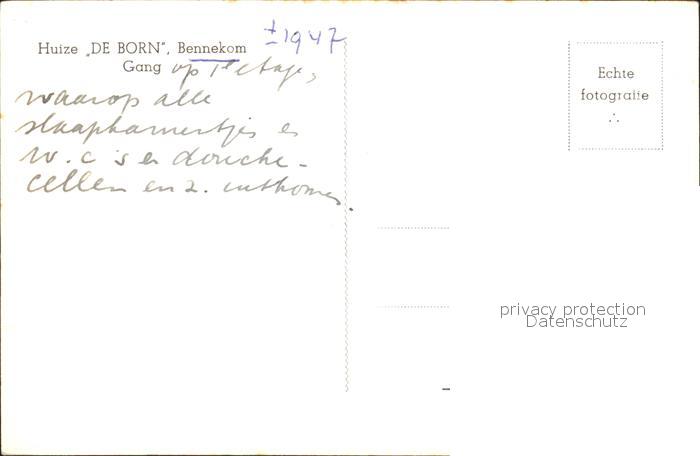 Huize „DE BORN", Bennekom ± 1947
Gang op 1e etage,
waarop alle
slaapkamertjes en
w.c's en douche-
cellen en 2.
Echte
fotografie
privacy protection
Datenschutz